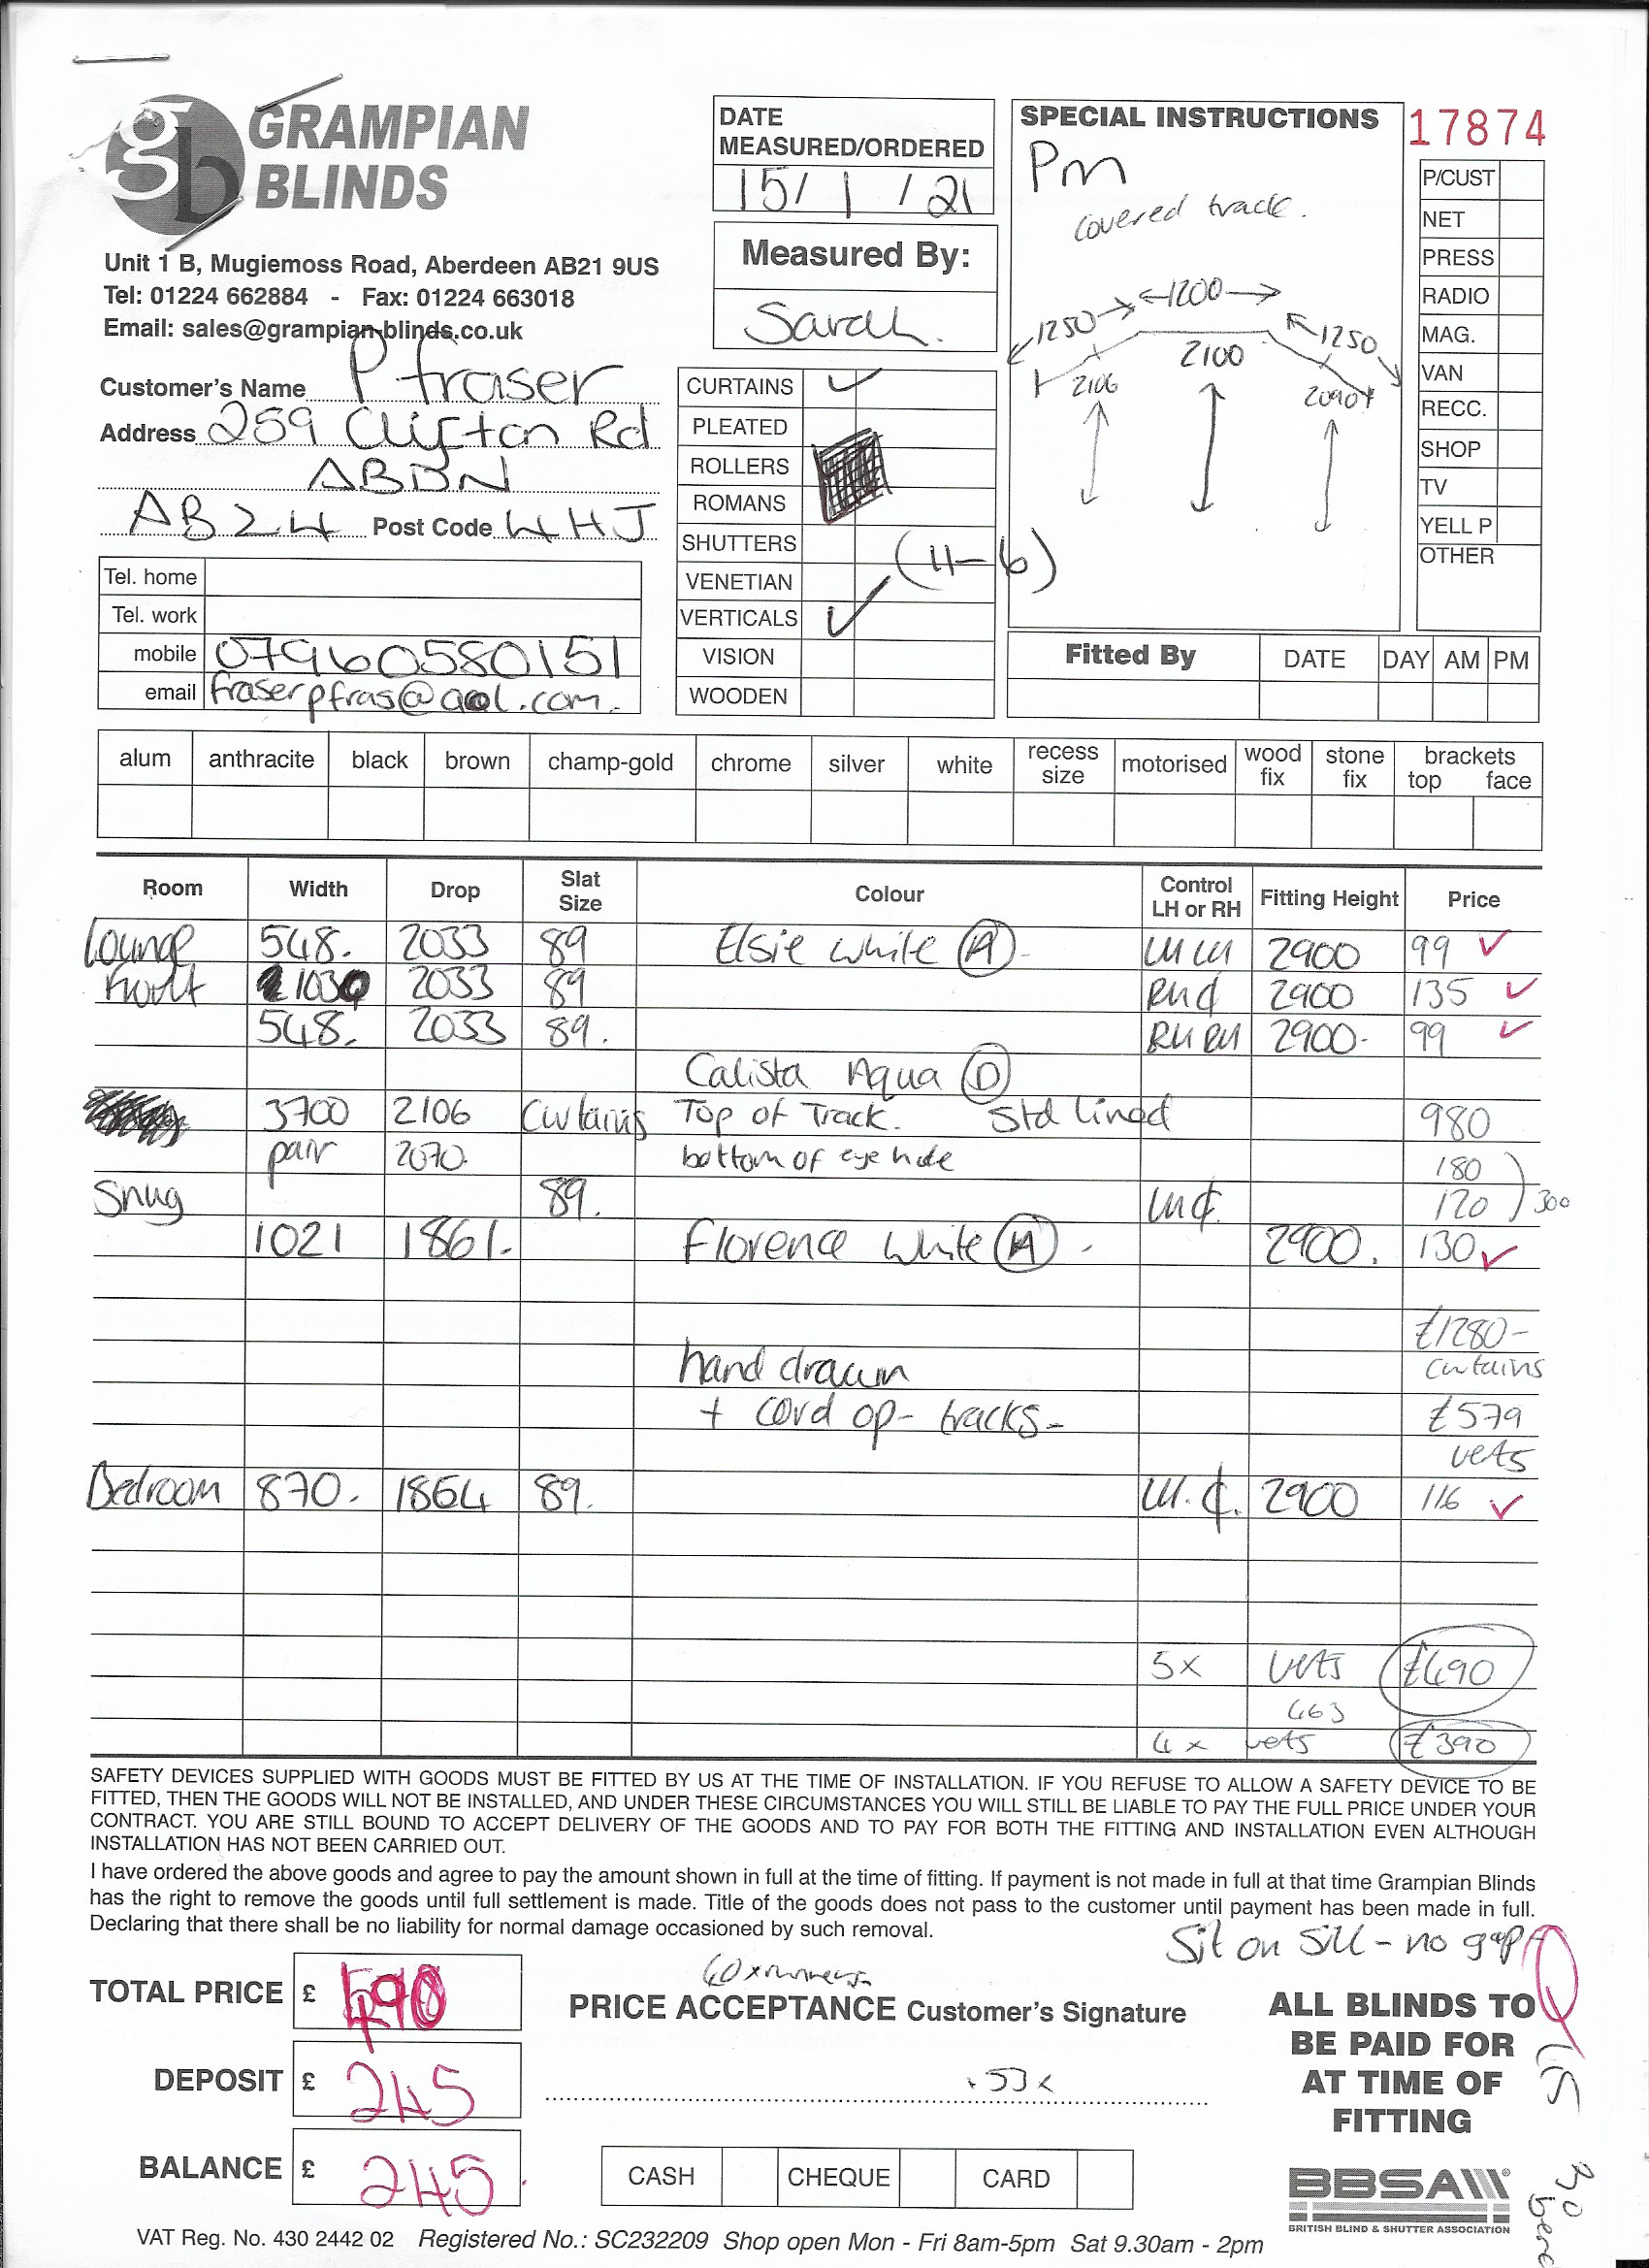 gb GRAMPIAN BLINDS
Unit 1 B, Mugiemoss Road, Aberdeen AB21 9US
Tel: 01224 662884 - Fax: 01224 663018
Email: sales@grampian-blinds.co.uk
Customer's Name P Fraser
Address 259 Clifton Rd
ABDN
AB24 Post Code 4HJ
Tel. home
Tel. work
mobile 07960580151
email fraserpfras@aol.com.
DATE
MEASURED/ORDERED
15/1/21
Measured By:
Sarah.
CURTAINS ✓
PLEATED
ROLLERS
ROMANS
SHUTTERS
VENETIAN
VERTICALS ✓
VISION
WOODEN
(11-6)
SPECIAL INSTRUCTIONS
Pm
covered track.
1250 1200 1250
2106 2100 2090
17874
P/CUST
NET
PRESS
RADIO
MAG.
VAN
RECC.
SHOP
TV
YELL P
OTHER
Fitted By DATE DAY AM PM
alum anthracite black brown champ-gold chrome silver white recess size motorised wood fix stone fix brackets top face
Room Width Drop Slat Size Colour Control LH or RH Fitting Height Price
Lounge 548. 2033 89 Elsie White (A) LH LH 2900 99 ✓
Front 1030 2033 89 RH ₵ 2900 135 ✓
548. 2033 89. RH RH 2900. 99 ✓
Calista Aqua (D)
3700 2106 Curtains Top of Track. Std lined 980
pair 2070. bottom of eye hole 180
Snug 89. LH ₵ 120 ) 300
1021 1861. Florence White (A) - 2900. 130 ✓
£1280-
hand drawn curtains
+ cord op- tracks- £579
verts
Bedroom 870. 1864 89. LH. ₵. 2900 116 ✓
5x verts £490
463
4x verts £390
SAFETY DEVICES SUPPLIED WITH GOODS MUST BE FITTED BY US AT THE TIME OF INSTALLATION. IF YOU REFUSE TO ALLOW A SAFETY DEVICE TO BE
FITTED, THEN THE GOODS WILL NOT BE INSTALLED, AND UNDER THESE CIRCUMSTANCES YOU WILL STILL BE LIABLE TO PAY THE FULL PRICE UNDER YOUR
CONTRACT. YOU ARE STILL BOUND TO ACCEPT DELIVERY OF THE GOODS AND TO PAY FOR BOTH THE FITTING AND INSTALLATION EVEN ALTHOUGH
INSTALLATION HAS NOT BEEN CARRIED OUT.
I have ordered the above goods and agree to pay the amount shown in full at the time of fitting. If payment is not made in full at that time Grampian Blinds
has the right to remove the goods until full settlement is made. Title of the goods does not pass to the customer until payment has been made in full.
Declaring that there shall be no liability for normal damage occasioned by such removal.
Sit on Sill - no gap
TOTAL PRICE £ 490
DEPOSIT £ 245
BALANCE £ 245.
PRICE ACCEPTANCE Customer's Signature
CASH CHEQUE CARD
ALL BLINDS TO
BE PAID FOR
AT TIME OF
FITTING
BBSA
BRITISH BLIND & SHUTTER ASSOCIATION
VAT Reg. No. 430 2442 02 Registered No.: SC232209 Shop open Mon - Fri 8am-5pm Sat 9.30am - 2pm